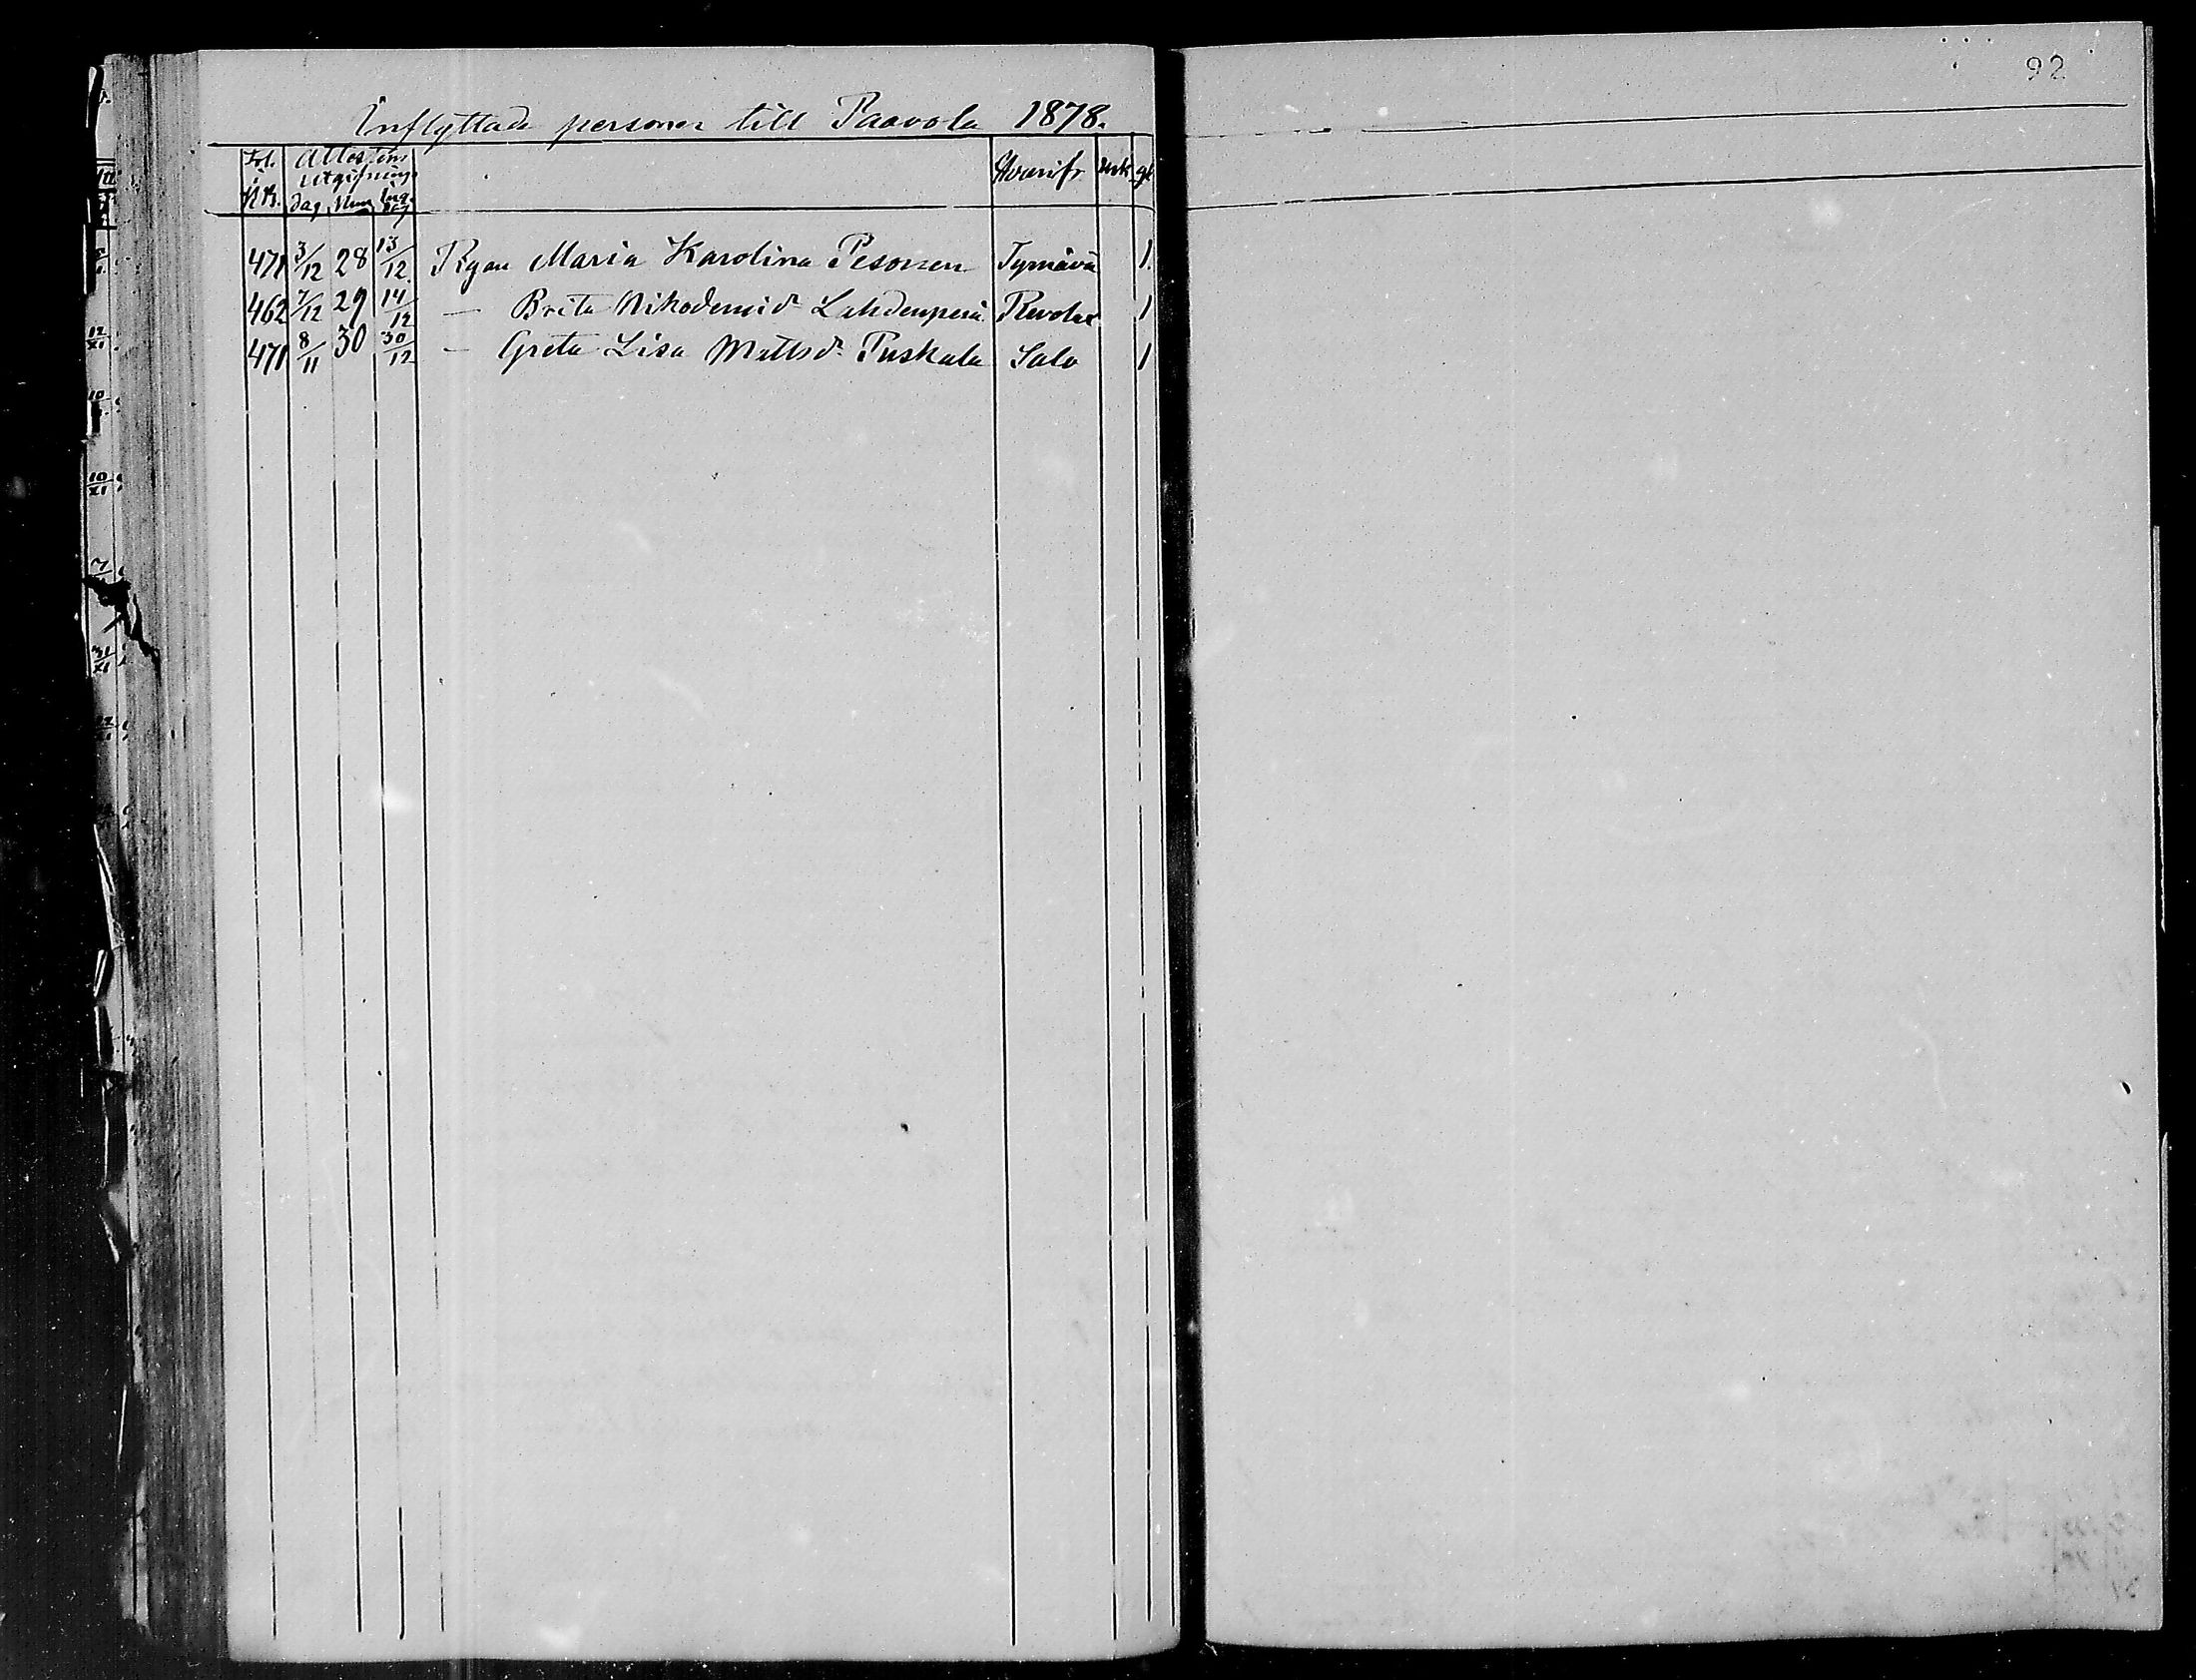 92
Inflyttade personer till Paavola 1878.
Fol. Attestens
utgifnings Hvarifr. mk. qk.
N:R. dag. Num.
471 3/12 28 13/12 Pigan Maria Karolina Pesonen Tyrnävä 1.
462 7/12 29 14/12 — Brita Nikodemid:r Lahdenperä Revolax 1
471 8/11 30 30/12 — Greta Lisa Mattsd:r Puskala Salo 1